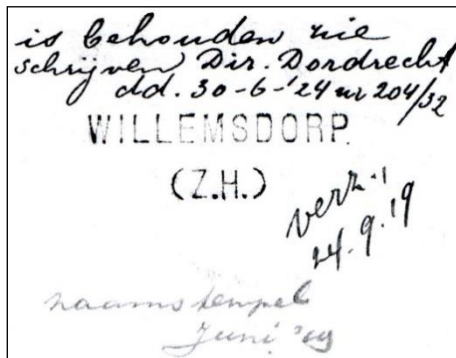 is behouden zie
schrijven Dir. Dordrecht
dd. 30-6-'24 nr 204/32
WILLEMSDORP.
(Z.H.)
verz.
24.9.19
naamstempel
Juni '19